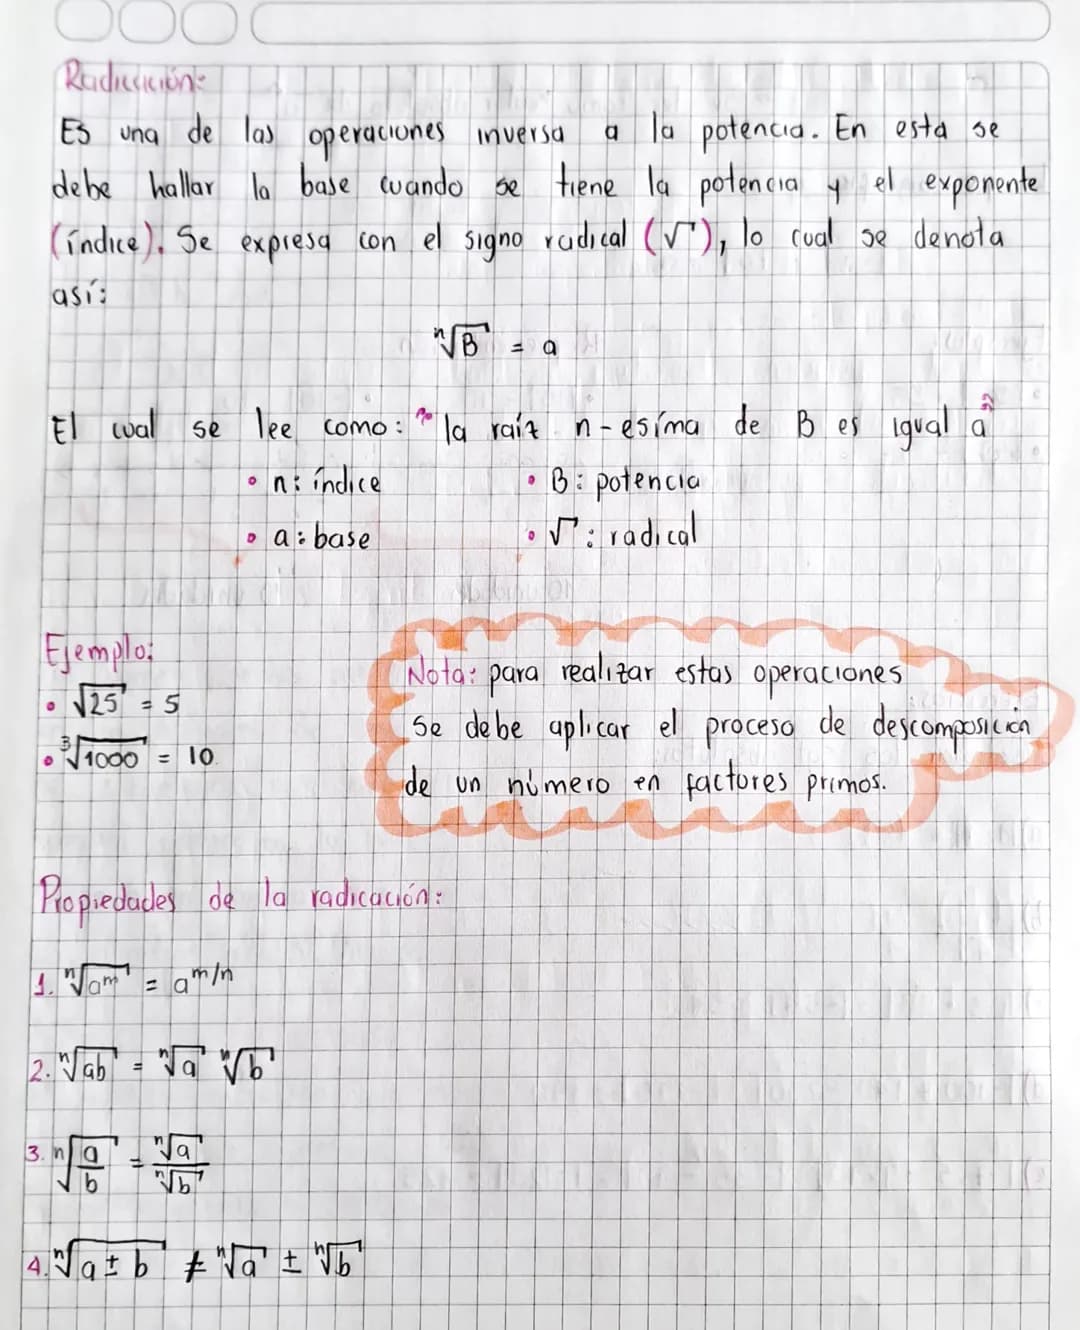 Radicación:
Es una de las operaciones inversa a la potencia. En esta se
debe hallar la base cuando se tiene la potencia y el exponente
(índice). Se expresa con el signo radical (√), lo cual se denota
así:
ⁿ√B = a
El cual se lee como: "la raíz n-esíma de B es igual a"
• n: índice • B: potencia
• a: base • √: radical
Ejemplo:
• √25 = 5
• ³√1000 = 10.
Nota: para realizar estas operaciones
se debe aplicar el proceso de descomposición
de un número en factores primos.
Propiedades de la radicación:
1. ⁿ√aᵐ = a^m/n
2. ⁿ√ab = ⁿ√a ⁿ√b
3. ⁿ√(a/b) = ⁿ√a / ⁿ√b
4. ⁿ√a ± b ≠ ⁿ√a ± ⁿ√b